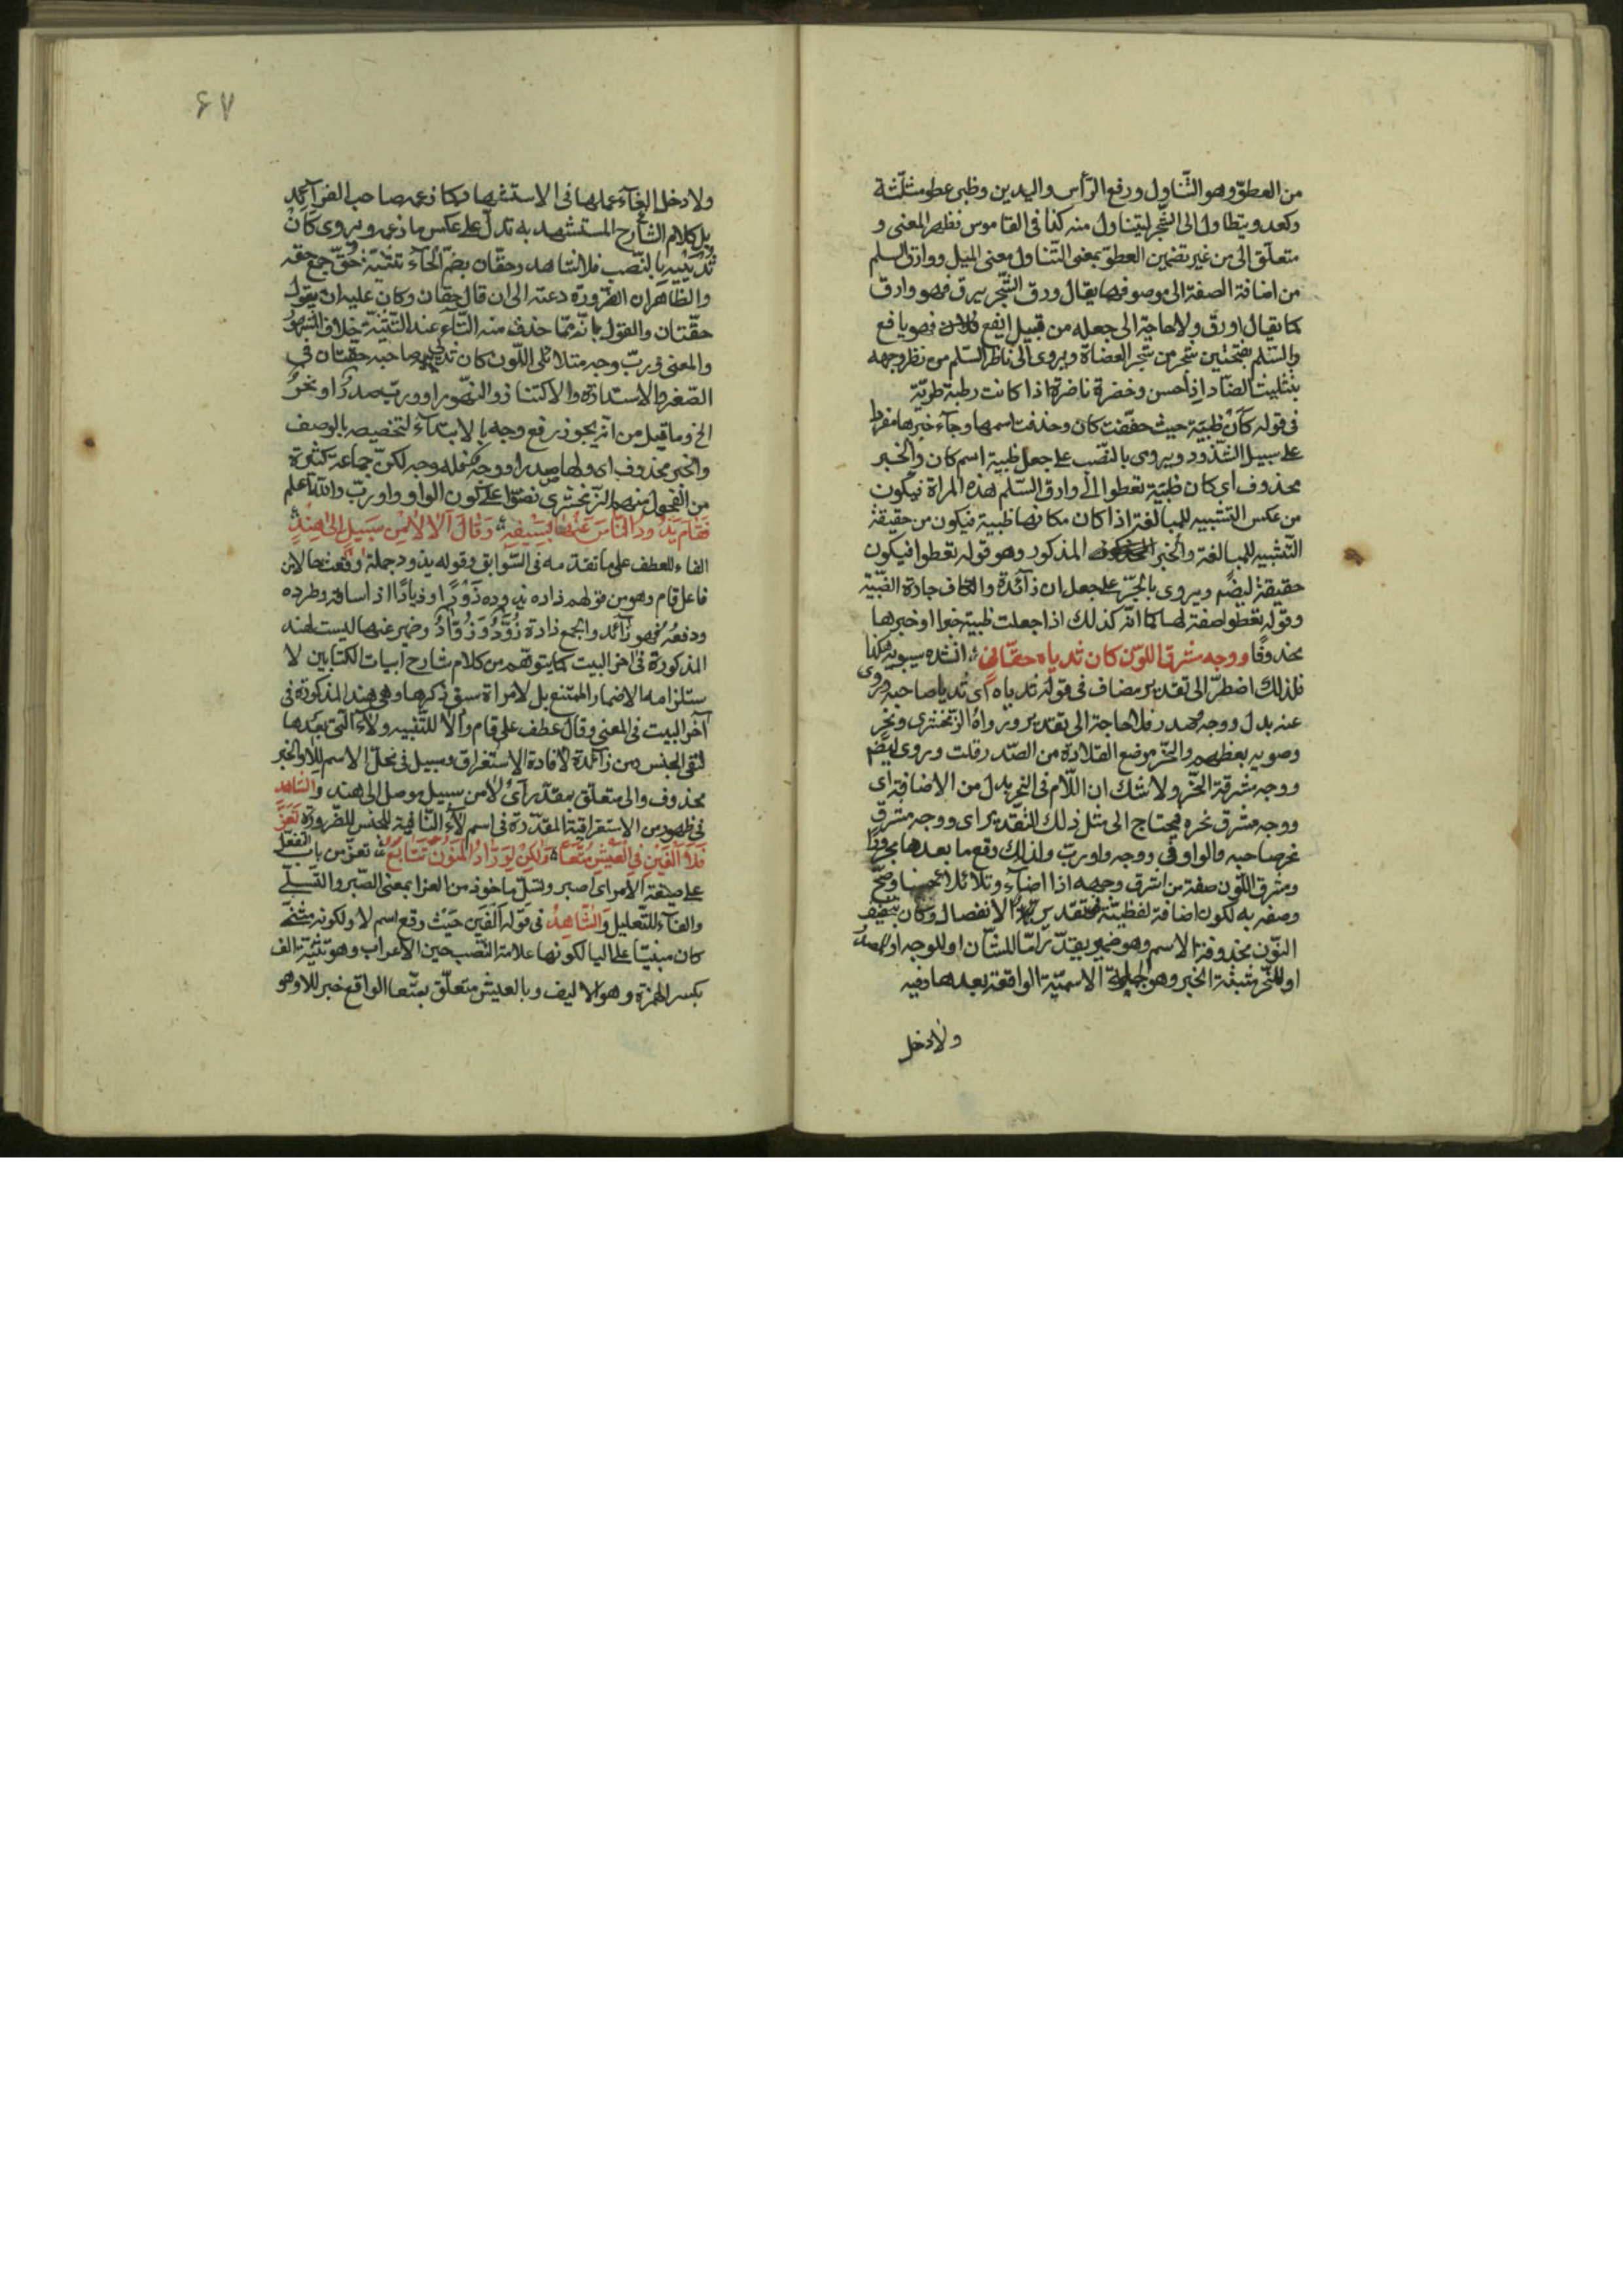 من العطوّ وهو التّناول ورفع الرّأس واليدين وظبى عطو مثلّثة
وكعدو يتطاول الى الشّجر ليتناول منه كذا فى القاموس نظهر المعنى و
متعلّق الى من غير تضمين العطوّ بمعنى التّناول معنى الميل ووارق السلم
من اضافة الصفة الى موصوفها يقال ورق الشّجر يرق فهو وارق
كما يقال اورق ولا حاجة الى جعله من قبيل ايفع فهو يافع
والسّلم بفتحتين شجر من شجر العضاة ويروى الى ناظر السّلم من نظر وجهه
بتثليث الضّاد اذا حسن وخضرة ناضرة اذا كانت رطبة طريّة
فى قوله كأن ظبية حيث خفّفت كان وحذفت اسمها وجآء خبرها مفردا
على سبيل الشّذوذ ويروى بالنّصب على جعل ظبية اسم كان والخبر
محذوف اى كان ظبية تعطوا الى وارق السّلم هذه المراة فيكون
من عكس التشبيه للمبالغة اذا كان مكانها ظبية فيكون من حقيقة
التّشبيه للمبالغة والخبر المذكور وهو قوله تعطوا فيكون
حقيقة ايضًا ويروى بالجرّ على جعل ان زآئدة والكاف جارة الظبية
وقوله تعطوا صفة لها كما انّه كذلك اذا جعلت ظبية خبرا او خبرها
محذوفًا ووجه مشرق اللون كان ثدياه حقّان انشده سيبويه هكذا
فلذلك اضطرّ الى تقدير مضاف فى قوله ثدياه اى ثديا صاحبه وروى
عنه بدل ووجه وصدر فلا حاجة الى تقدير ورواه الزمخشرى ونحر
وصوبه بعظهم والنّحر موضع القلادة من الصّدر قلت وروى ايضًا
ووجه مشرقة النّحر ولا شك ان اللّام فى النحر بدل من الاضافة اى
ووجه مشرق نحره فيحتاج الى مثل ذلك التّقدير اى ووجه مشرق
نحر صاحبه والواو فى ووجه واو ربّ ولذلك وقع ما بعدها مجرورًا
ومشرق اللّون صفة من اشرق وجهه اذا اضآء وتلائلا حسنا وصحّ
وصفه به لكون اضافة لفظيّة بتقدير الانفصال وكان بتخفيف
النّون محذوفة الاسم وهو ضمير يقدّر امّا للشّأن او للوجه او الصدر
او للنّحر مثبتة الخبر وهو الجملة الاسميّة الواقعة بعدها وفيه
ولا دخل
٦٧
ولا دخل الغآء عملها فى الاستشهاد كما زعمه صاحب الفرآئد
بل كلام الشّارح المستشهد به تدلّ على عكس ما زعمه ويروى كأن
ثدييه بالنّصب فلا شاهد وحقّان بضمّ الحآء تثنية حقّ جمع حقه
والظّاهر ان الضّرورة دعته الى ان قال حقان وكان عليه ان يقول
حقّتان والقول بانّه ممّا حذف منه التّآء عند التّثنية خلاف المشهور
والمعنى وربّ وجه متلائلى اللّون كان ثديى صاحبه حقتان فى
الصّغر والاستدارة والاكتناز والنّهور او وربّ صدر او نحر
الخ وما قيل من انه يجوز رفع وجه بالابتدآء لتخصيصه بالوصف
والخبر محذوف اى ولها صدر او وجه لكنّ جماعة كثيرة
من الفحول منهم الزّمخشرى نصّوا على كون الواو واو ربّ واللّه اعلم
فَقَامَ يَذُودُ النَّاسَ عَنْهَا بِسَيْفِهِ وَقَالَ اَلَا لَا مِنْ سَبِيلٍ اِلَى هِنْدٍ
الفاء للعطف على ما تقدّمه فى السّوابق وقوله يذود جملة وقعت حالا من
فاعل قام وهو من قولهم ذاده يذوده ذَوْدًا وذيادًا اذا ساقه وطرده
ودفعه فهو ذآئد والجمع ذادة ذُوَّدٌ وَذُوَّادٌ وضمير عنها ليست لهند
المذكورة فى آخر البيت كما يتوهّم من كلام شارح ابيات الكتابين لا
ستلزامه الاضمار الممتنع بل لامراة سبق ذكرها وهى هند المذكورة فى
آخر البيت فى المعنى وقال عطف على قام وألا للتّنبيه ولآء الّتى بعدها
لنفى الجنس ومن زآئدة لافادة الاستغراق وسبيل فى محلّ الاسم للا والخبر
محذوف والى متعلّق بمقدّر اى لا من سبيل موصل الى هند والشاهد
فى ظهور من الاستغراقية المقدّرة فى اسم لآء النّافية للجنس للضّرورة تَعَزَّ
فَلَا اَلْفَيْنِ فِى الْعَيْشِ مُتِّعَا وَلَكِنْ لِوَرَّادِ الْمَنُونِ تَتَابُعُ تعزّ من باب التفعّل
على صيغة الامر اى اصبر وتسلّ ماخوذ من العزا بمعنى الصّبر والتّسلّى
والفآء للتّعليل وَالشّاهِدُ فى قوله اَلْفَيْن حَيْث وقع اسم لا ولكونه مثنّى
كان مبنيّا على اليا لكونها علامة النّصب حين الاعراب وهو تثنية الف
بكسر الهمزة وهو الاليف وبالعيش متعلّق بمتّعا الواقع خبر للا وهو